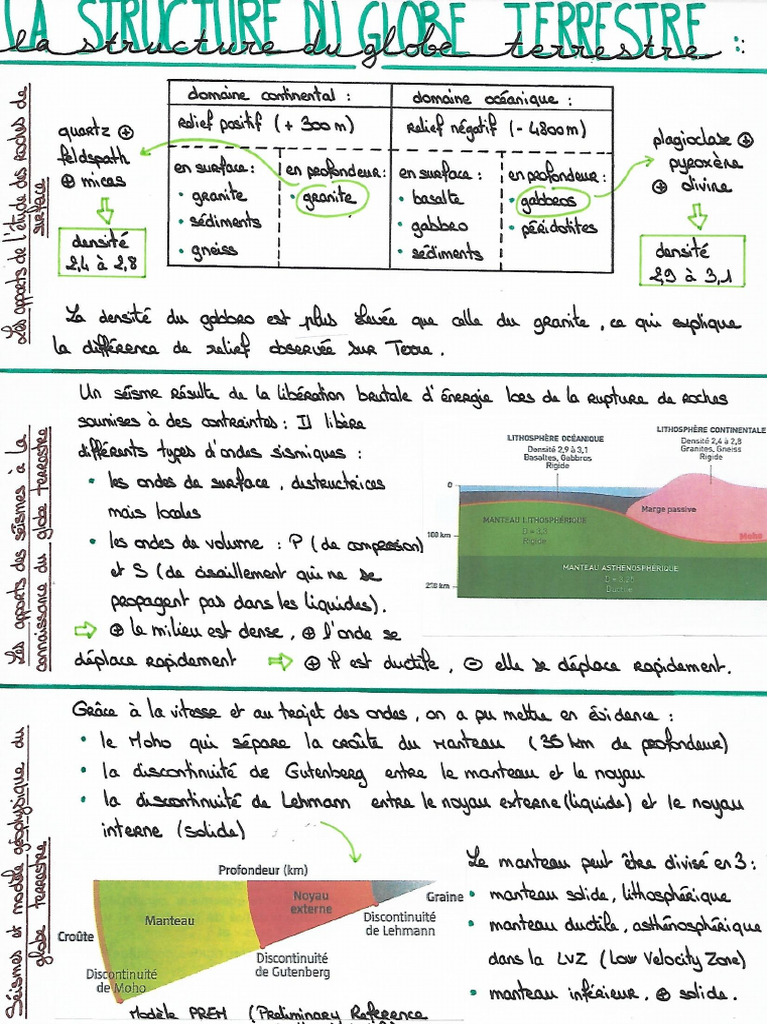 LA STRUCTURE DU GLOBE TERRESTRE
la structure du globe terrestre :
Les apports de l'étude des roches de
surface
quartz ⊕
feldspath
⊕ micas
densité
2,4 à 2,8
domaine continental :
relief positif (+ 300 m)
en surface :
• granite
• sédiments
• gneiss
en profondeur :
• granite
domaine océanique :
relief négatif (- 4800 m)
en surface :
• basalte
• gabbro
• sédiments
en profondeur :
• gabbros
• péridotites
plagioclase ⊕
pyroxène
⊕ olivine
densité
2,9 à 3,1
La densité du gabbro est plus élevée que celle du granite, ce qui explique
la différence de relief observée sur Terre.
Les apports des séismes à la
connaissance du globe terrestre
Un séisme résulte de la libération brutale d'énergie lors de la rupture de roches
soumises à des contraintes : Il libère
différents types d'ondes sismiques :
• les ondes de surface, destructrices
mais locales
• les ondes de volume : P (de compression)
et S (de cisaillement qui ne se
propagent pas dans les liquides).
⇨ ⊕ le milieu est dense, ⊕ l'onde se
déplace rapidement ⇨ ⊕ il est ductile, ⊖ elle se déplace rapidement.
LITHOSPHÈRE OCÉANIQUE
Densité 2,9 à 3,1
Basaltes, Gabbros
Rigide
LITHOSPHÈRE CONTINENTALE
Densité 2,4 à 2,8
Granites, Gneiss
Rigide
0
Marge passive
MANTEAU LITHOSPHÉRIQUE
D = 3,3
Rigide
Moho
100 km
MANTEAU ASTHÉNOSPHÉRIQUE
D = 3,25
Ductile
200 km
Séismes et modèle géophysique du
globe terrestre
Grâce à la vitesse et au trajet des ondes, on a pu mettre en évidence :
• le Moho qui sépare la croûte du manteau (35 km de profondeur)
• la discontinuité de Gutenberg entre le manteau et le noyau
• la discontinuité de Lehmann entre le noyau externe (liquide) et le noyau
interne (solide)
Profondeur (km)
Croûte
Manteau
Noyau
externe
Graine
Discontinuité
de Lehmann
Discontinuité
de Gutenberg
Discontinuité
de Moho
Modèle PREM (Preliminary Reference
Le manteau peut être divisé en 3 :
• manteau solide, lithosphérique
• manteau ductile, asthénosphérique
dans la LVZ (Low Velocity Zone)
• manteau inférieur, ⊕ solide.